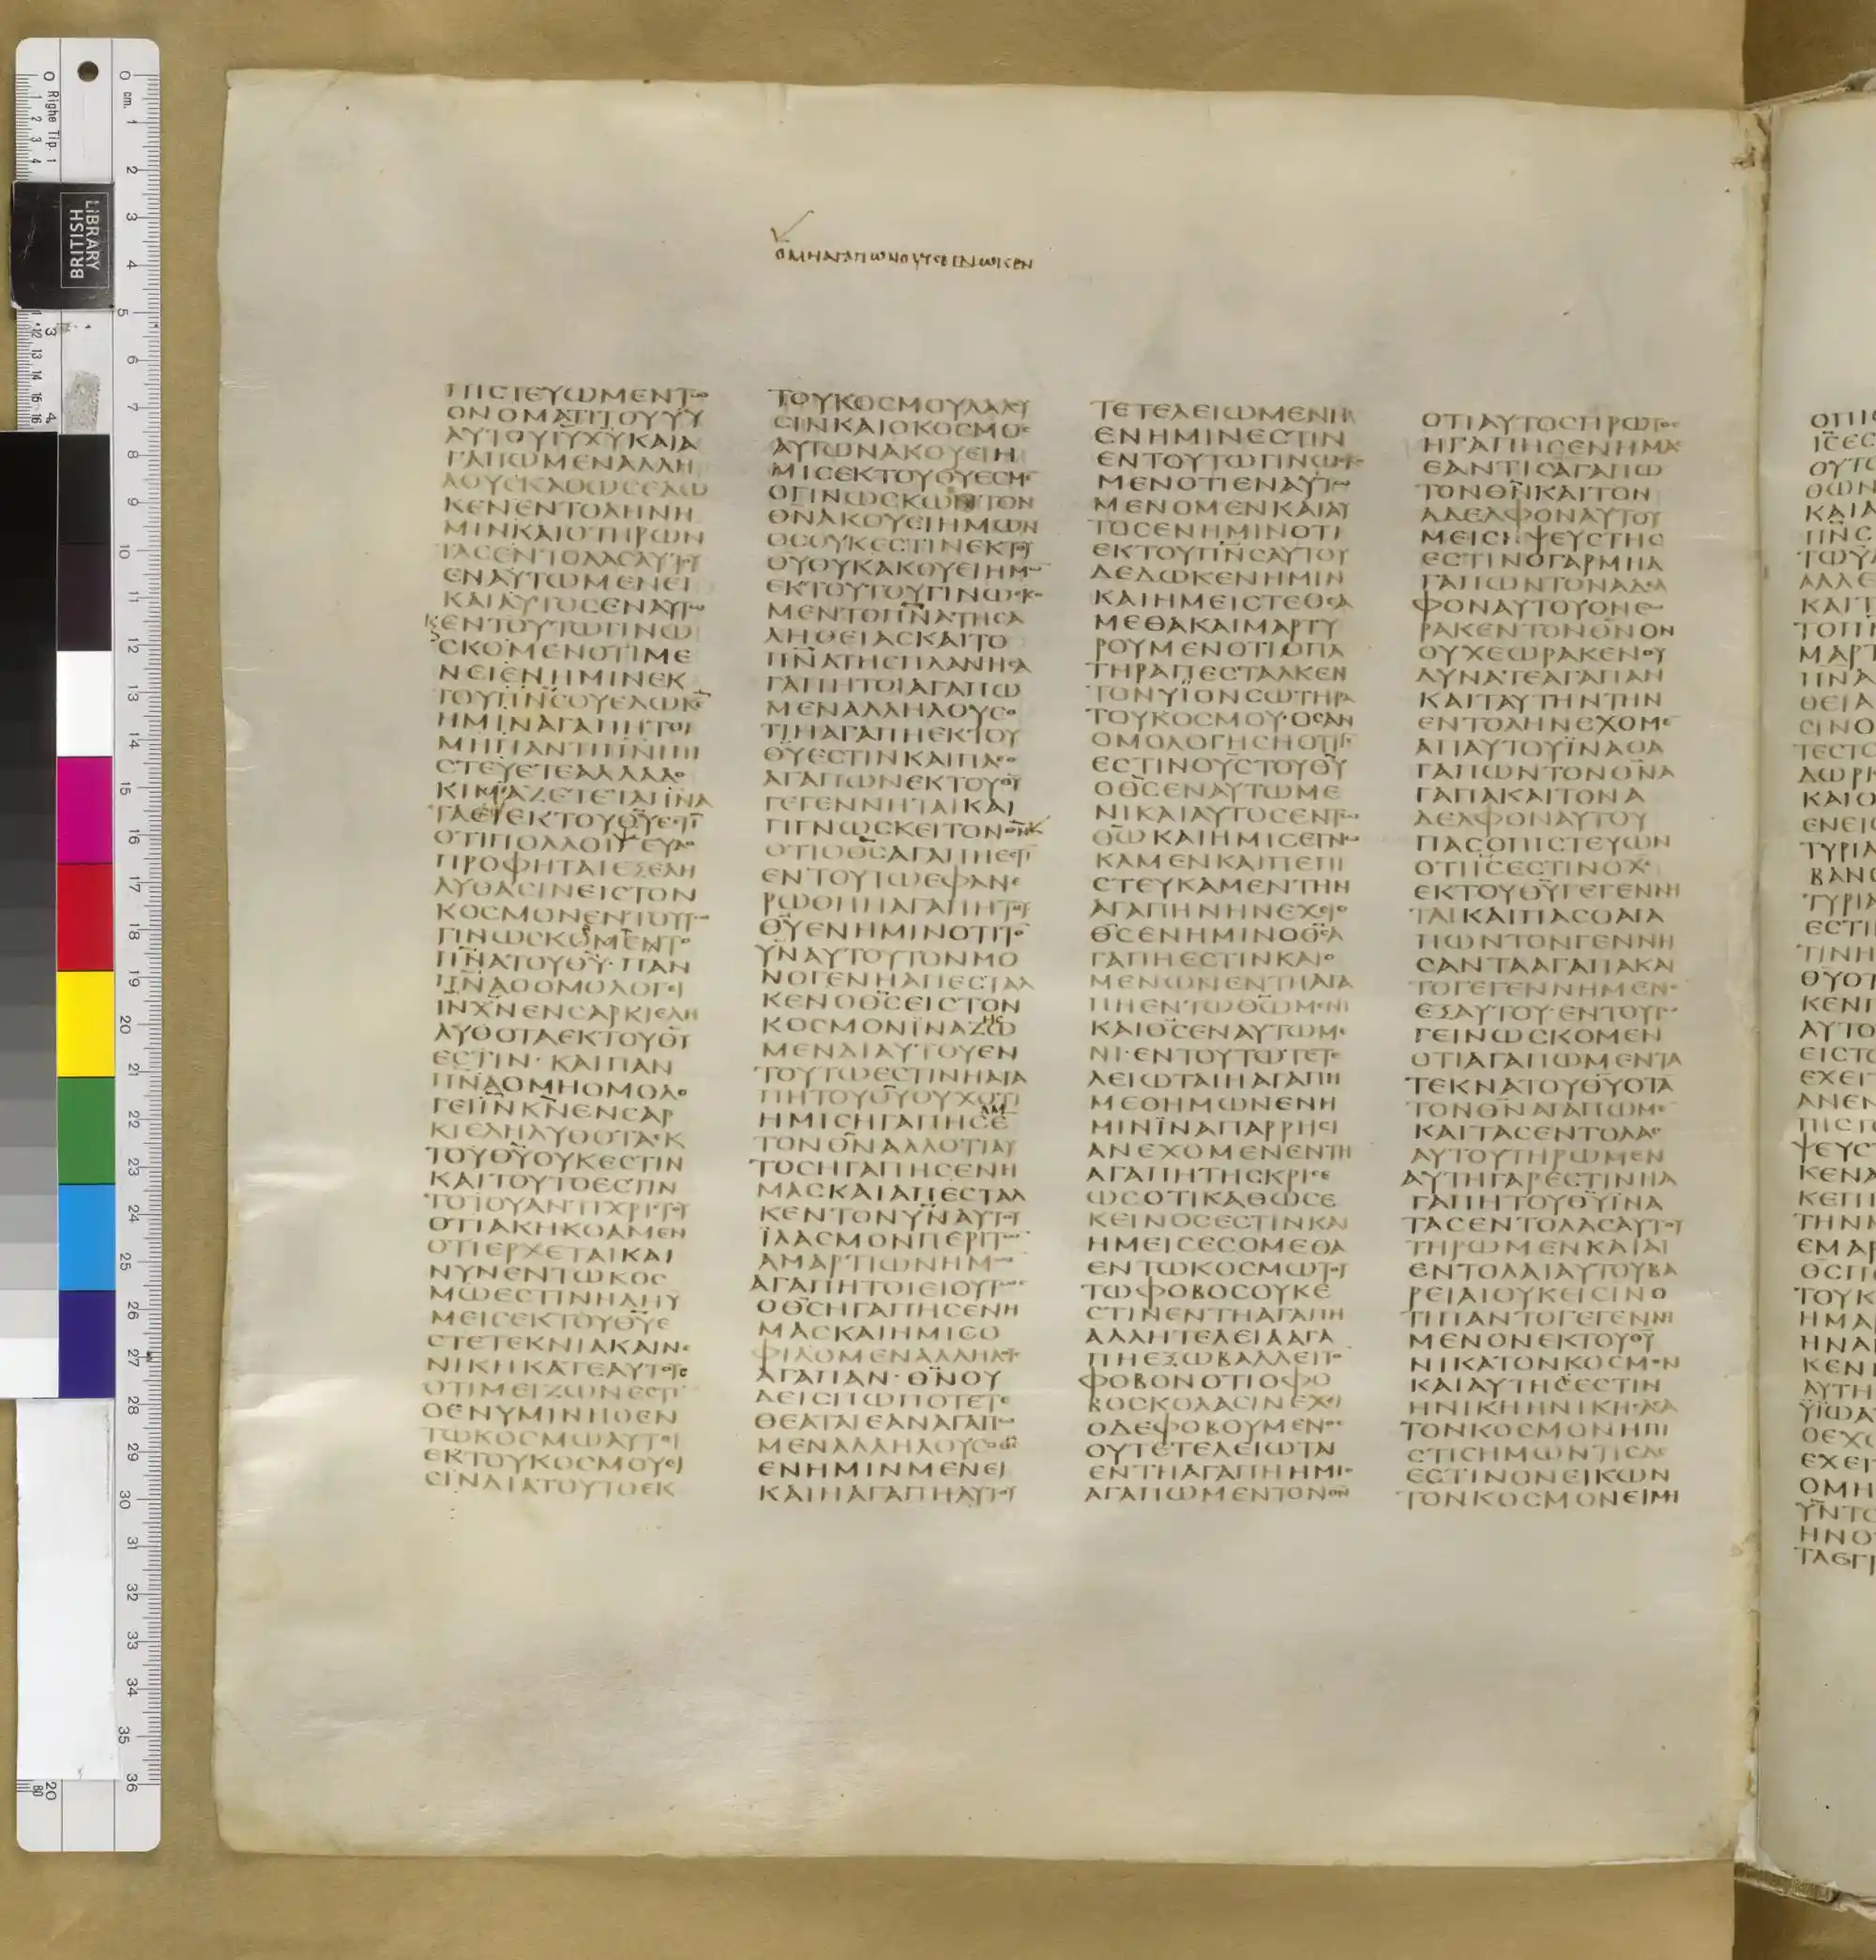 ΟΜΗΑΓΑΠΩΝΟΥΚΕΓΝΩΚΕΝ
ΠΙCΤΕΥΩΜΕΝΤΩ
ΟΝΟΜΑΤΙΤΟΥΥΥ
ΑΥΤΟΥΙΥΧΥΚΑΙΑ
ΓΑΠΩΜΕΝΑΛΛΗ
ΛΟΥCΚΑΘΩCΕΔΩ
ΚΕΝΕΝΤΟΛΗΝΗ
ΜΙΝΚΑΙΟΤΗΡΩΝ
ΤΑCΕΝΤΟΛΑCΑΥΤΟΥ
ΕΝΑΥΤΩΜΕΝΕΙ
ΚΑΙΑΥΤΟCΕΝΑΥΤΩ
ΚΕΝΤΟΥΤΩΓΙΝΩ
CΚΟΜΕΝΟΤΙΜΕ
ΝΕΙΕΝΗΜΙΝΕΚ
ΤΟΥΠΝCΟΥΕΔΩΚΕ
ΗΜΙΝΑΓΑΠΗΤΟΙ
ΜΗΠΑΝΤΙΠΝΙΠΙ
CΤΕΥΕΤΕΑΛΛΑΔΟ
ΚΙΜΑΖΕΤΕΤΑΠΝΑ
ΟΤΙΠΟΛΛΟΙΨΕΥΔΟ
ΠΡΟΦΗΤΑΙΕΞΕΛΗ
ΛΥΘΑCΙΝΕΙCΤΟΝ
ΚΟCΜΟΝΕΝΤΟΥΤΩ
ΓΙΝΩCΚΟΜΕΝΤΟ
ΠΝΑΤΟΥΘΥ·ΠΑΝ
ΠΝΑΟΟΜΟΛΟΓΕΙ
ΙΝΧΝΕΝCΑΡΚΙΕΛΗ
ΛΥΘΟΤΑΕΚΤΟΥΘΥ
ΕCΤΙΝ·ΚΑΙΠΑΝ
ΠΝΑΟΜΗΟΜΟΛΟ
ΓΕΙΙΝΚΝΕΝCΑΡ
ΚΙΕΛΗΛΥΘΟΤΑΕΚ
ΤΟΥΘΥΟΥΚΕCΤΙΝ
ΚΑΙΤΟΥΤΟΕCΤΙΝ
ΤΟΤΟΥΑΝΤΙΧΡΙCΤΟΥ
ΟΤΙΑΚΗΚΟΑΜΕΝ
ΟΤΙΕΡΧΕΤΑΙΚΑΙ
ΝΥΝΕΝΤΩΚΟC
ΜΩΕCΤΙΝΗΔΗΥ
ΜΕΙCΕΚΤΟΥΘΥΕ
CΤΕΤΕΚΝΙΑΚΑΙΝΕ
ΝΙΚΗΚΑΤΕΑΥΤΟΥC
ΟΤΙΜΕΙΖΩΝΕCΤΙ
ΟΕΝΥΜΙΝΗΟΕΝ
ΤΩΚΟCΜΩΑΥΤΟΙ
ΕΚΤΟΥΚΟCΜΟΥΕΙ
CΙΝΔΙΑΤΟΥΤΟΕΚ
ΤΟΥΚΟCΜΟΥΛΑΛΟΥ
CΙΝΚΑΙΟΚΟCΜΟC
ΑΥΤΩΝΑΚΟΥΕΙΗ
ΜΙCΕΚΤΟΥΘΥΕCΜΕ
ΟΓΙΝΩCΚΩΝΤΟΝ
ΘΝΑΚΟΥΕΙΗΜΩΝ
ΟCΟΥΚΕCΤΙΝΕΚΤΟΥ
ΘΥΟΥΚΑΚΟΥΕΙΗΜΩ
ΕΚΤΟΥΤΟΥΓΙΝΩCΚΟ
ΜΕΝΤΟΠΝΑΤΗCΑ
ΛΗΘΕΙΑCΚΑΙΤΟ
ΠΝΑΤΗCΠΛΑΝΗCΑ
ΓΑΠΗΤΟΙΑΓΑΠΩ
ΜΕΝΑΛΛΗΛΟΥCΟ
ΤΙΗΑΓΑΠΗΕΚΤΟΥ
ΘΥΕCΤΙΝΚΑΙΠΑCΟ
ΑΓΑΠΩΝΕΚΤΟΥΘΥ
ΓΕΓΕΝΝΗΤΑΙΚΑΙ
ΓΙΓΝΩCΚΕΙΤΟΝΘΝ
ΟΤΙΟΘCΑΓΑΠΗΕCΤΙ
ΕΝΤΟΥΤΩΕΦΑΝΕ
ΡΩΘΗΗΑΓΑΠΗΤΟΥ
ΘΥΕΝΗΜΙΝΟΤΙΤΟ
ΥΝΑΥΤΟΥΤΟΝΜΟ
ΝΟΓΕΝΗΑΠΕCΤΑΛ
ΚΕΝΟΘCΕΙCΤΟΝ
ΚΟCΜΟΝΙΝΑΖΗCΩ
ΜΕΝΔΙΑΥΤΟΥΕΝ
ΤΟΥΤΩΕCΤΙΝΗΑΓΑ
ΠΗΤΟΥΘΥΟΥΧΟΤΙ
ΗΜΙCΗΓΑΠΗCΑΜΕ
ΤΟΝΘΝΑΛΛΟΤΙΑΥ
ΤΟCΗΓΑΠΗCΕΝΗ
ΜΑCΚΑΙΑΠΕCΤΑΛ
ΚΕΝΤΟΝΥΝΑΥΤΟΥ
ΙΛΑCΜΟΝΠΕΡΙΤΩ
ΑΜΑΡΤΙΩΝΗΜΩ
ΑΓΑΠΗΤΟΙΕΙΟΥΤΩC
ΟΘCΗΓΑΠΗCΕΝΗ
ΜΑCΚΑΙΗΜΙCΟ
ΦΙΛΟΜΕΝΑΛΛΗΛΟΥC
ΑΓΑΠΑΝ·ΘΝΟΥ
ΔΕΙCΠΩΠΟΤΕΤΕ
ΘΕΑΤΑΙΕΑΝΑΓΑΠΩ
ΜΕΝΑΛΛΗΛΟΥCΟΘC
ΕΝΗΜΙΝΜΕΝΕΙ
ΚΑΙΗΑΓΑΠΗΑΥΤΟΥ
ΤΕΤΕΛΕΙΩΜΕΝΗ
ΕΝΗΜΙΝΕCΤΙΝ
ΕΝΤΟΥΤΩΓΙΝΩCΚΟ
ΜΕΝΟΤΙΕΝΑΥΤΩ
ΜΕΝΟΜΕΝΚΑΙΑΥ
ΤΟCΕΝΗΜΙΝΟΤΙ
ΕΚΤΟΥΠΝCΑΥΤΟΥ
ΔΕΔΩΚΕΝΗΜΙΝ
ΚΑΙΗΜΕΙCΤΕΘΕΑ
ΜΕΘΑΚΑΙΜΑΡΤΥ
ΡΟΥΜΕΝΟΤΙΟΠΑ
ΤΗΡΑΠΕCΤΑΛΚΕΝ
ΤΟΝΥΙΟΝCΩΤΗΡΑ
ΤΟΥΚΟCΜΟΥ·ΟCΑΝ
ΟΜΟΛΟΓΗCΗΟΤΙΙC
ΕCΤΙΝΟΥCΤΟΥΘΥ
ΟΘCΕΝΑΥΤΩΜΕ
ΝΙΚΑΙΑΥΤΟCΕΝΤΩ
ΘΩΚΑΙΗΜΙCΕΓΝΩ
ΚΑΜΕΝΚΑΙΠΕΠΙ
CΤΕΥΚΑΜΕΝΤΗΝ
ΑΓΑΠΗΝΗΝΕΧΕΙΟ
ΘCΕΝΗΜΙΝΟΘCΑ
ΓΑΠΗΕCΤΙΝΚΑΙΟ
ΜΕΝΩΝΕΝΤΗΑΓΑ
ΠΗΕΝΤΩΘΩΜΕΝΙ
ΚΑΙΟΘCΕΝΑΥΤΩΜΕ
ΝΙ·ΕΝΤΟΥΤΩΤΕΤΕ
ΛΕΙΩΤΑΙΗΑΓΑΠΗ
ΜΕΘΗΜΩΝΕΝΗ
ΜΙΝΙΝΑΠΑΡΡΗCΙ
ΑΝΕΧΟΜΕΝΕΝΤΗ
ΑΓΑΠΗΤΗCΚΡΙCΕ
ΩCΟΤΙΚΑΘΩCΕ
ΚΕΙΝΟCΕCΤΙΝΚΑΙ
ΗΜΕΙCΕCΟΜΕΘΑ
ΕΝΤΩΚΟCΜΩΤΟΥ
ΤΩΦΟΒΟCΟΥΚΕ
CΤΙΝΕΝΤΗΑΓΑΠΗ
ΑΛΛΗΤΕΛΕΙΑΑΓΑ
ΠΗΕΞΩΒΑΛΛΕΙΤΟ
ΦΟΒΟΝΟΤΙΟΦΟ
ΒΟCΚΟΛΑCΙΝΕΧΕΙ
ΟΔΕΦΟΒΟΥΜΕΝΟC
ΟΥΤΕΤΕΛΕΙΩΤΑΙ
ΕΝΤΗΑΓΑΠΗΗΜΙC
ΑΓΑΠΩΜΕΝΤΟΝΘΝ
ΟΤΙΑΥΤΟCΠΡΩΤΟC
ΗΓΑΠΗCΕΝΗΜΑC
ΤΟΝΘΝΚΑΙΤΟΝ
ΑΔΕΛΦΟΝΑΥΤΟΥ
ΜΕΙCΗΨΕΥCΤΗC
ΕCΤΙΝΟΓΑΡΜΗΑ
ΓΑΠΩΝΤΟΝΑΔΕΛ
ΦΟΝΑΥΤΟΥΟΝΕΩ
ΡΑΚΕΝΤΟΝΘΝΟΝ
ΟΥΧΕΩΡΑΚΕΝΟΥ
ΔΥΝΑΤΕΑΓΑΠΑΝ
ΚΑΙΤΑΥΤΗΝΤΗΝ
ΕΝΤΟΛΗΝΕΧΟΜΕ
ΑΠΑΥΤΟΥΙΝΑΟΑ
ΓΑΠΩΝΤΟΝΘΝΑ
ΓΑΠΑΚΑΙΤΟΝΑ
ΔΕΛΦΟΝΑΥΤΟΥ
ΠΑCΟΠΙCΤΕΥΩΝ
ΟΤΙΙCΕCΤΙΝΟΧC
ΕΚΤΟΥΘΥΓΕΓΕΝΝΗ
ΤΑΙΚΑΙΠΑCΟΑΓΑ
ΠΩΝΤΟΝΓΕΝΝΗ
CΑΝΤΑΑΓΑΠΑΚΑΙ
ΤΟΓΕΓΕΝΝΗΜΕΝΟ
ΕΞΑΥΤΟΥ·ΕΝΤΟΥΤΩ
ΓΕΙΝΩCΚΟΜΕΝ
ΟΤΙΑΓΑΠΩΜΕΝΤΑ
ΤΕΚΝΑΤΟΥΘΥΟΤΑ
ΤΟΝΘΝΑΓΑΠΩΜΕ
ΚΑΙΤΑCΕΝΤΟΛΑC
ΑΥΤΟΥΤΗΡΩΜΕΝ
ΑΥΤΗΓΑΡΕCΤΙΝΗΑ
ΓΑΠΗΤΟΥΘΥΙΝΑ
ΤΑCΕΝΤΟΛΑCΑΥΤΟΥ
ΤΗΡΩΜΕΝΚΑΙΑΙ
ΕΝΤΟΛΑΙΑΥΤΟΥΒΑ
ΡΕΙΑΙΟΥΚΕΙCΙΝΟ
ΤΙΠΑΝΤΟΓΕΓΕΝΝΗ
ΜΕΝΟΝΕΚΤΟΥΘΥ
ΝΙΚΑΤΟΝΚΟCΜΟΝ
ΚΑΙΑΥΤΗCΕCΤΙΝ
ΗΝΙΚΗΗΝΙΚΗCΑCΑ
ΤΟΝΚΟCΜΟΝΗΠΙ
CΤΙCΗΜΩΝΤΙCΔΕ
ΕCΤΙΝΟΝΕΙΚΩΝ
ΤΟΝΚΟCΜΟΝΕΙΜΗ